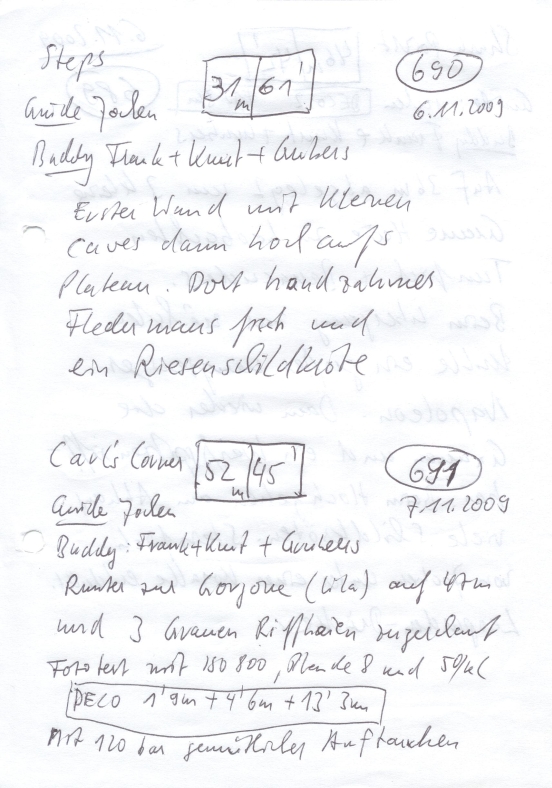 Steps 31m 61' 690
Guide Jochen 6.11.2009
Buddy Frank + Knut +
Erster Wand mit kleinen
caves dann hoch aufs
Plateau. Dort handzahmes
Fledermaus und
ein Riesenschildkröte
Carl's Corner 52m 45' 691
Guide Jochen 7.11.2009
Buddy: Frank + Knut +
Runter zur Gorgone (lila) auf 47m
und 3 Grauen Riffhaien zugeschaut
Fototest mit ISO 800, Blende 8 und
DECO 1' 9m + 4' 6m + 13' 3m
Mit 120 bar gemütliches Auftauchen